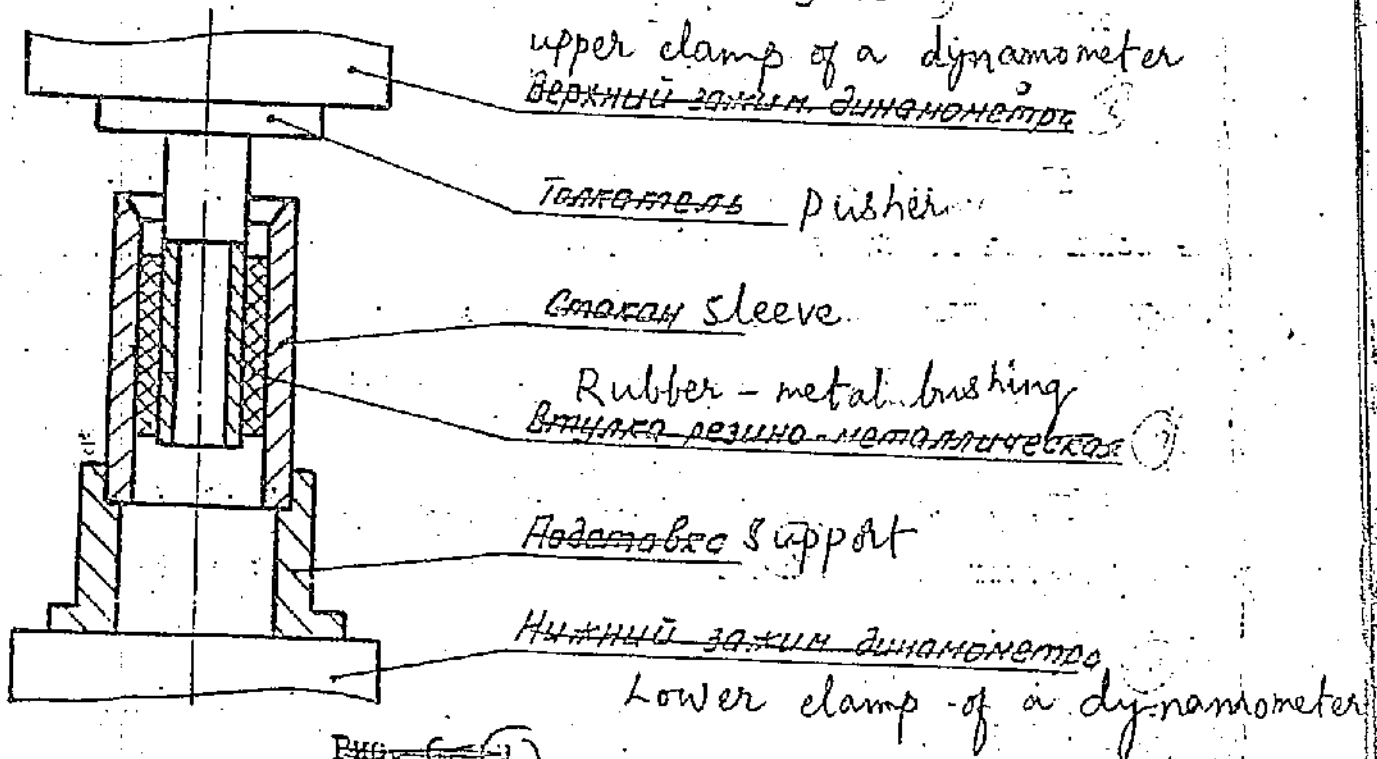 upper clamp of a dynamometer
Верхний зажим динамометра
Толкатель pusher
Стакан sleeve
Rubber - metal bushing
Втулка резино-металлическая
Подставка Support
Нижний зажим динамометра
Lower clamp of a dynamometer
Рис.